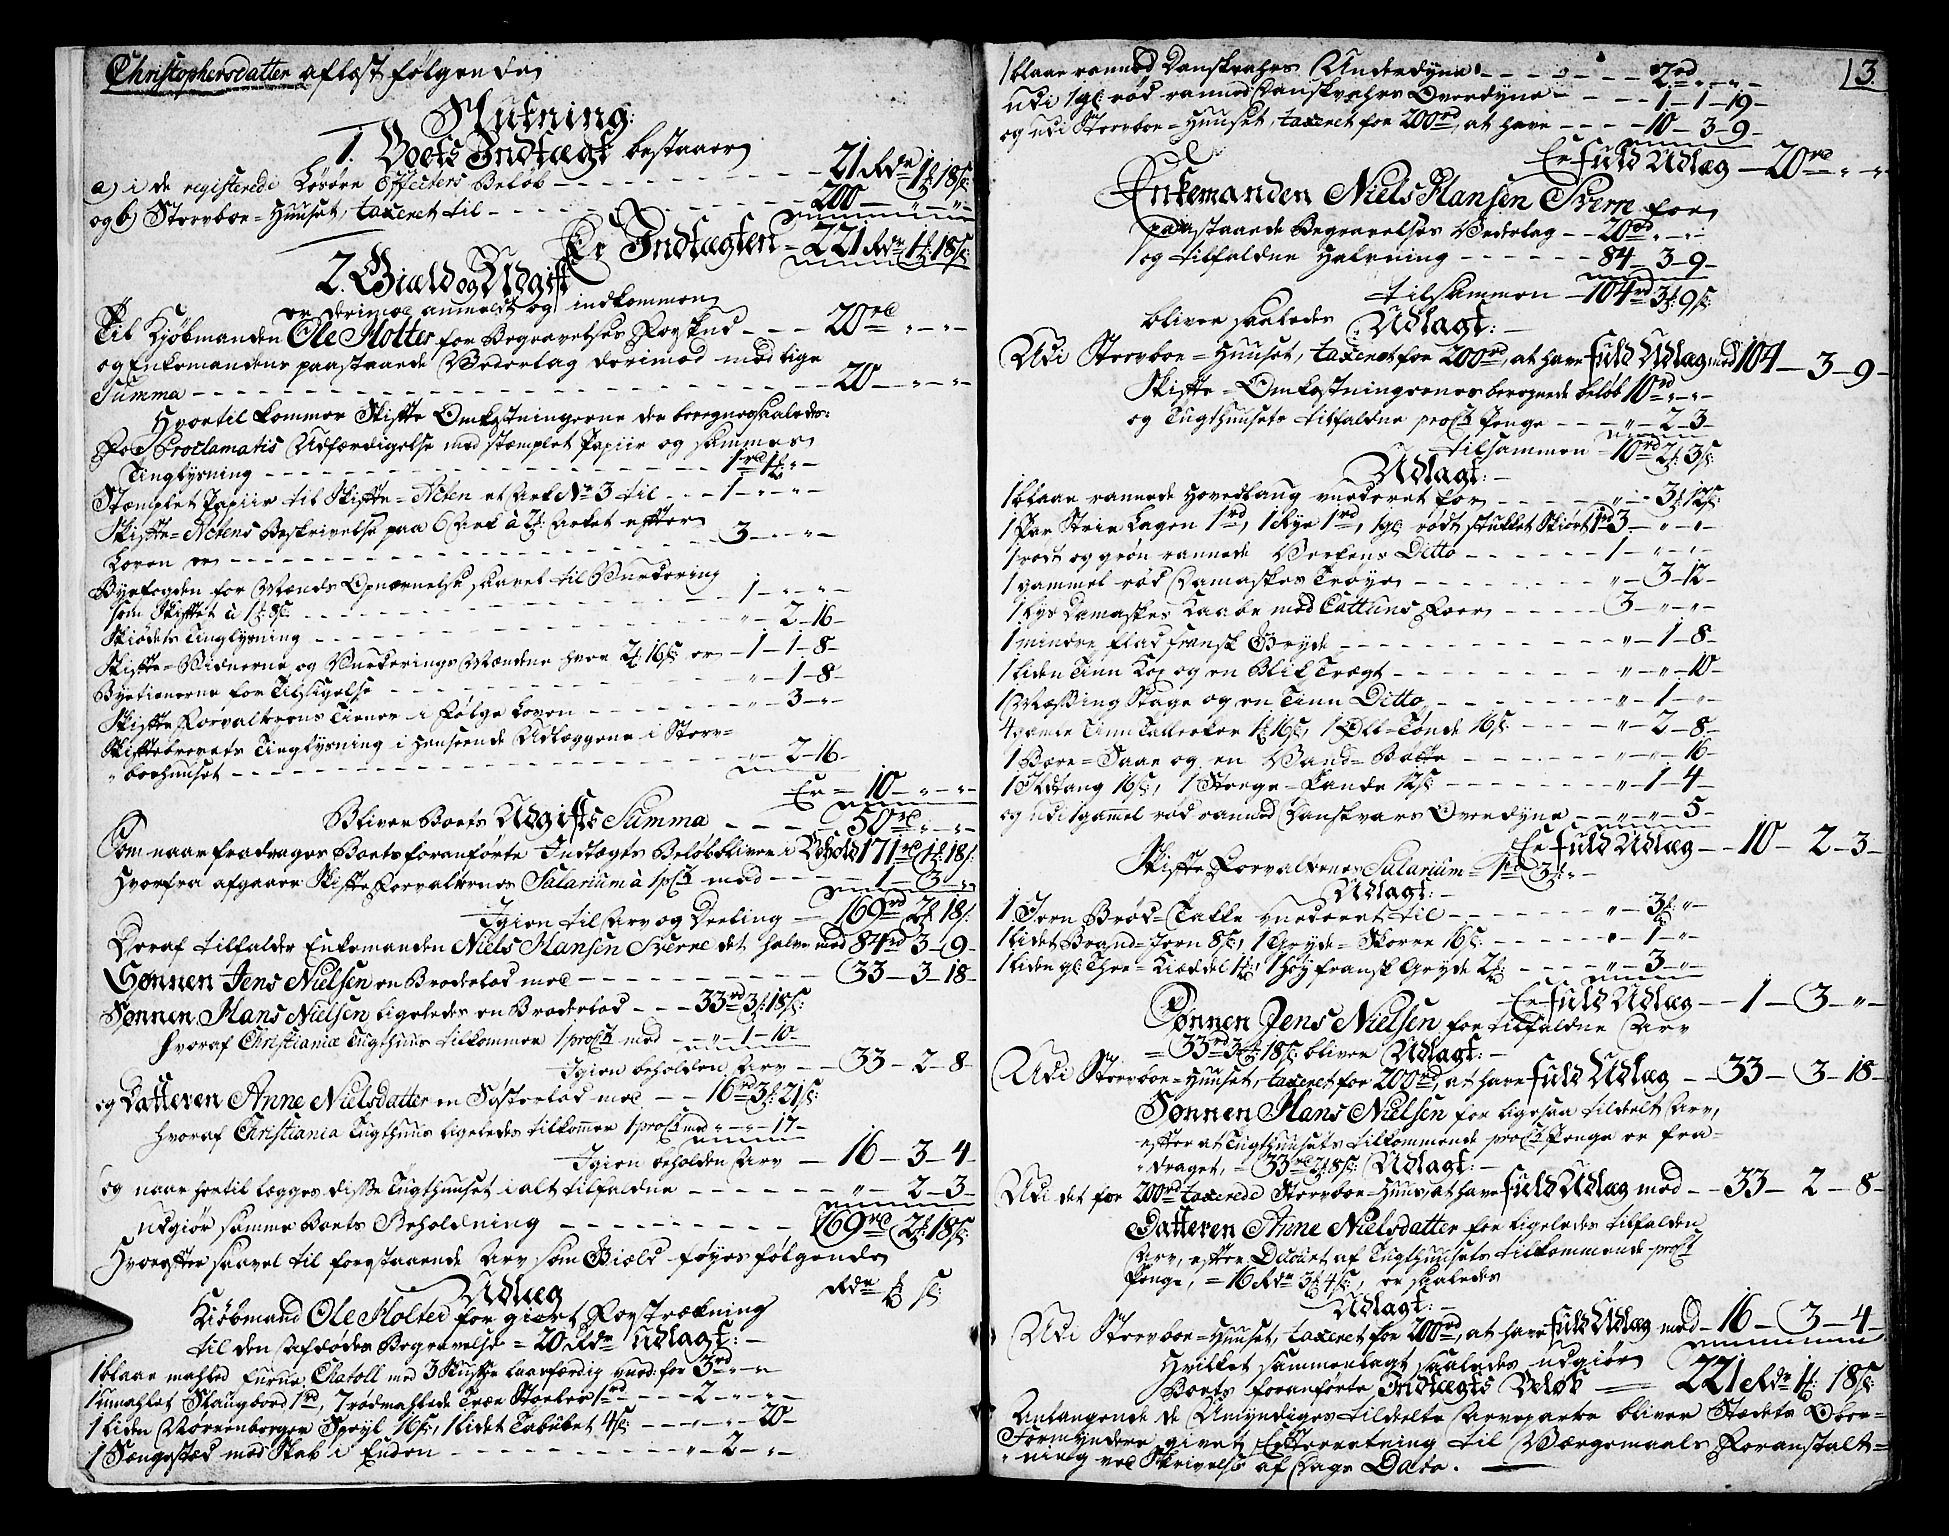 Christophersdatter aflæst følgende
Slutning:
1. Boets Indtægt bestaaer
a) i de registerede Løsøre Effecters Beløb - - - 21 Rdr 1 18 s:
og b) Storvboe-Huuset, taxeret til - - - 200 - " - "
Er Indtægten - 221 Rdr 1 18 s:
2. Giæld og Udgift
er derimod anmeldt og indkommen
Til Kjøbmanden Ole Holter for Begravelses Forskud - - - 20 rd " - "
og Enkemandens paastaaende Vederlag derimod med lige
Summa - - - 20 - " - "
Hvortil kommer Skifte Omkostningerne der beregnes saaledes:
For Proclamatis Udfærdigelse med stemplet Papiir og sammes
Tinglysning - - - 1 rd 1 "
Stemplet Papiir til Skifte-Acten et Ark No 3 til - - - 1 - " - "
Skifte-Actens Beskrivelse paa 6 Ark à 2 Arket efter
Loven er - - - 3 - " - "
Byefogden for Mænds Opnævnelse saavel til Vurdering
som Skiftet à 1 8 s: - - - 1 - " - "
Skiødets Tinglysning - - - " - 2 - 16 -
Skifte-Vidnerne og Vurderings Mændene hver 2 16 s: er - 1 - 1 - 8 -
Byetienerne for Tilsigelse - - - " - 1 - 8 -
Skifte Forvalterens Tiener i Følge Loven - - - " - 3 - "
Skiftebrevets Tinglysning i Henseende Udlæggene i Storv-
"boehuuset - - - " - 2 - 16 -
Er - 10 - " - "
Bliver Boets Udgifts Summa - - - 50 rd " - "
Som naar fradrages Boets foranførte Indtægts Beløb bliver i Behold 171 rd 1 18 s:
Hvorfra afgaaer Skifte Forvalterens Salarium à 1 pCt med - - - 1 - 3 - "
Igien til Arv og Deeling - 169 rd 2 18 s:
Deraf tilfalder Enkemanden Niels Hansen Sverre det halve med 84 rd 3 - 9 -
Sønnen Jens Nielsen en Broderlod med - - - 33 - 3 - 18 -
Sønnen Hans Nielsen ligeledes en Broderlod - - - 33 rd 3 18 s:
hvoraf Christianiæ Tugthuus tilkommer 1 proCt med - " - 1 - 10 -
Igien beholden Arv - - 33 - 2 - 8 -
og Datteren Anne Nielsdatter en Søsterlod med - - 16 rd 3 21 s:
hvoraf Christiania Tugthuus ligeledes tilkommer 1 proCt med " - " - 17 -
Igien beholden Arv - 16 - 3 - 4 -
og naar hertil lægges disse Tugthuuset i alt tilfaldne - - - " - 2 - 3 -
udgiør samme Boets Beholdning - - - 169 rd 2 18 s:
Hvorefter saavel til forestaaende Arv som Giæld føyes følgende
Udlæg Rdr s:
Kiøbmand Ole Holter for giort Forstrækning
til den Afdødes Begravelse = 20 Rdr Udlagt: -
1 blaae mahled Furue Chatoll med 3 Skuffer laasfærdig vurd: for 3 rd " - "
1 umahlet Slaugbord 1 rd, 7 rødmahlede Træe Stoeler 1 rd - - - 2 - " - "
1 liden Nørrenberger Speyl 16 s:, 1 lidet Tabuket 4 s: - - - " - " - 20 -
1 Sengested med Skab i Enden - - - " - 2 - "
13.
1 blaae rannet Danskvahrs Underdyne - - - 2 rd " - "
udi 1 gl: rød rannet Danskvahrs Overdyne - - - 1 - 1 - 19 -
og udi Storvboe-Huuset, taxeret for 200 rd, at have - - - 10 - 3 - 9 -
Er Fuld Udlæg - 20 rd " "
Enkemanden Niels Hansen Sverre for
paastaaende Begravelses Vederlag - - 20 rd " - "
og tilfaldne Halvning - - - 84 - 3 - 9 -
tilsammen - 104 rd 3 9 s:
bliver saaledes Udlagt: -
Udi Storvboe-Huuset, taxeret for 200 rd, at have fuld Udlæg med 104 - 3 - 9 -
Skifte-Omkostningernes beregnede beløb 10 rd " - "
og Tugthuusets tilfaldne proCt Penge - - - " - 2 - 3 -
tilsammen - 10 rd 2 3 s:
Udlagt: -
1 blaae rannede Hovedlaug vurderet for - - - " - 3 12 s:
1 Par Strie Lagen 1 rd, 1 Rye 1 rd, 1 gl: rødt stukket Skiørt 1 rd 3 - " - "
1 rødt og grøn rannede Verkens Ditto - - - 1 - " - "
1 gammel rød Damaskes Trøye - - - " - 3 - 12 -
1 lys Damaskes Kaabe med Cattuns Foer - - - 3 - " - "
1 mindre flad fransk Gryde - - - " - 1 - 8 -
1 liden Tinn Kop og en Blik Tregt - - - " - " - 10 -
1 Messing Stage og en Tinn Ditto - - - " - 1 - "
4 gamle Tinn Tallerker 1 16 s:, 1 Øll-Tønde 16 s: - - - " - 2 - 8 -
1 Bære-Saae og en Vand-Bøtte - - - " - " - 16 -
1 Ildtang 16 s:, 1 Stege-Pande 12 s: - - - " - 1 - 4 -
og udi 1 gammel rød rannet Danskvars Overdyne - - - " - " - 5 -
Er Fuld Udlæg - - 10 - 2 - 3 -
Skifte Forvalterens Salarium = 1 rd 3 " -
Udlagt: -
1 Jern Brød-Takke vurderet til - - - " - 3 " -
1 lidet Brand-Jern 8 s:, 1 Gryde-Skorre 16 s: - - - " - 1 - "
1 liden gl: Thee-Kieddel 1, 1 Høy fransk Gryde 2 - - - " - 3 - "
Er Fuld Udlæg - - 1 - 3 - "
Sønnen Jens Nielsen for tilfaldne Arv
= 33 rd 3 18 s: bliver Udlagt: -
Udi Storvboe-Huuset, taxeret for 200 rd, at have fuld Udlæg - - 33 - 3 - 18 -
Sønnen Hans Nielsen for ligesaa tildelt Arv,
efter at Tugthuusets tilkommende proCt Penge er fra-
"draget, = 33 rd 2 8 s: Udlagt: -
Udi det for 200 rd taxerede Storvboe-Huus at have fuld Udlæg med - - 33 - 2 - 8 -
Datteren Anne Nielsdatter for ligeledes tilfalden
Arv, efter Decourt af Tugthuusets tilkommende proCt
Penge, = 16 Rdr 3 4 s:, er saaledes
Udlagt: -
Udi Storvboe-Huuset, taxeret for 200 rd, at have fuld Udlæg med - 16 - 3 - 4 -
Hvilket sammenlagt saaledes udgiør
Boets foranførte Indtægts Beløb - 221 Rdr 1 18 s:
Anlangende de Umyndiges tildelte Arveparter bliver Stædets Over-
Formyndere givet Efterretning til Værgemaals Foranstalt-
"ning ved Skrivelse af Dags Dato.